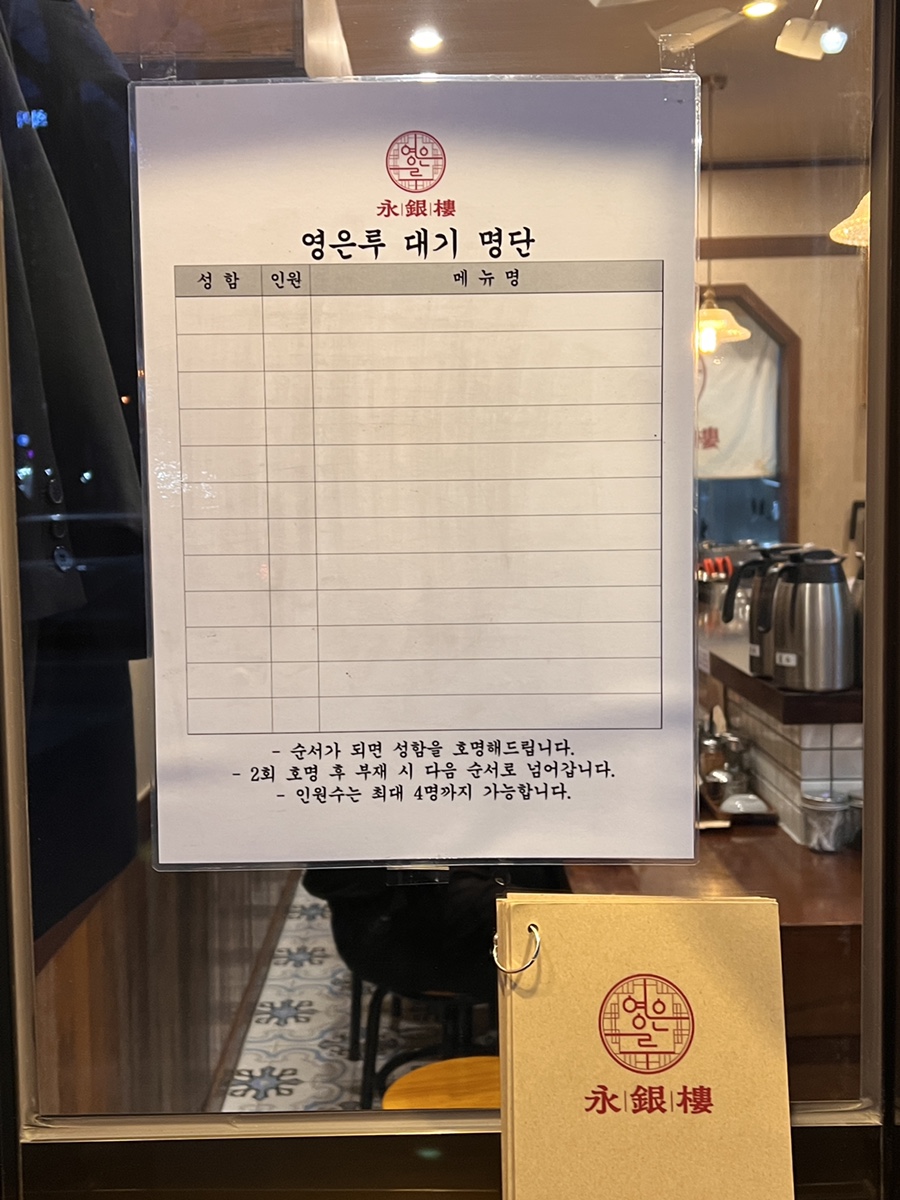 영은루
永|銀|樓
영은루 대기 명단
성 함 인원 메 뉴 명
- 순서가 되면 성함을 호명해드립니다.
- 2회 호명 후 부재 시 다음 순서로 넘어갑니다.
- 인원수는 최대 4명까지 가능합니다.
樓
영은루
永|銀|樓